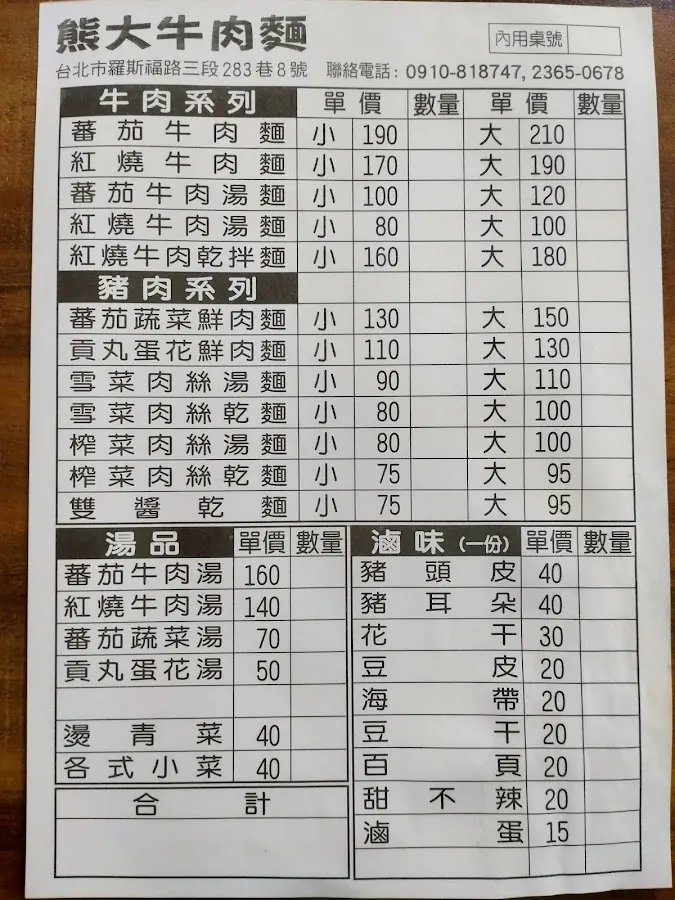 熊大牛肉麵 內用桌號
台北市羅斯福路三段283巷8號 聯絡電話：0910-818747, 2365-0678
牛肉系列 單價 數量 單價 數量
蕃茄牛肉麵 小 190 大 210
紅燒牛肉麵 小 170 大 190
蕃茄牛肉湯麵 小 100 大 120
紅燒牛肉湯麵 小 80 大 100
紅燒牛肉乾拌麵 小 160 大 180
豬肉系列
蕃茄蔬菜鮮肉麵 小 130 大 150
貢丸蛋花鮮肉麵 小 110 大 130
雪菜肉絲湯麵 小 90 大 110
雪菜肉絲乾麵 小 80 大 100
榨菜肉絲湯麵 小 80 大 100
榨菜肉絲乾麵 小 75 大 95
雙醬乾麵 小 75 大 95
湯品 單價 數量
蕃茄牛肉湯 160
紅燒牛肉湯 140
蕃茄蔬菜湯 70
貢丸蛋花湯 50
燙青菜 40
各式小菜 40
合計
滷味(一份) 單價 數量
豬頭皮 40
豬耳朵 40
花干 30
豆皮 20
海帶 20
豆干 20
百頁 20
甜不辣 20
滷蛋 15